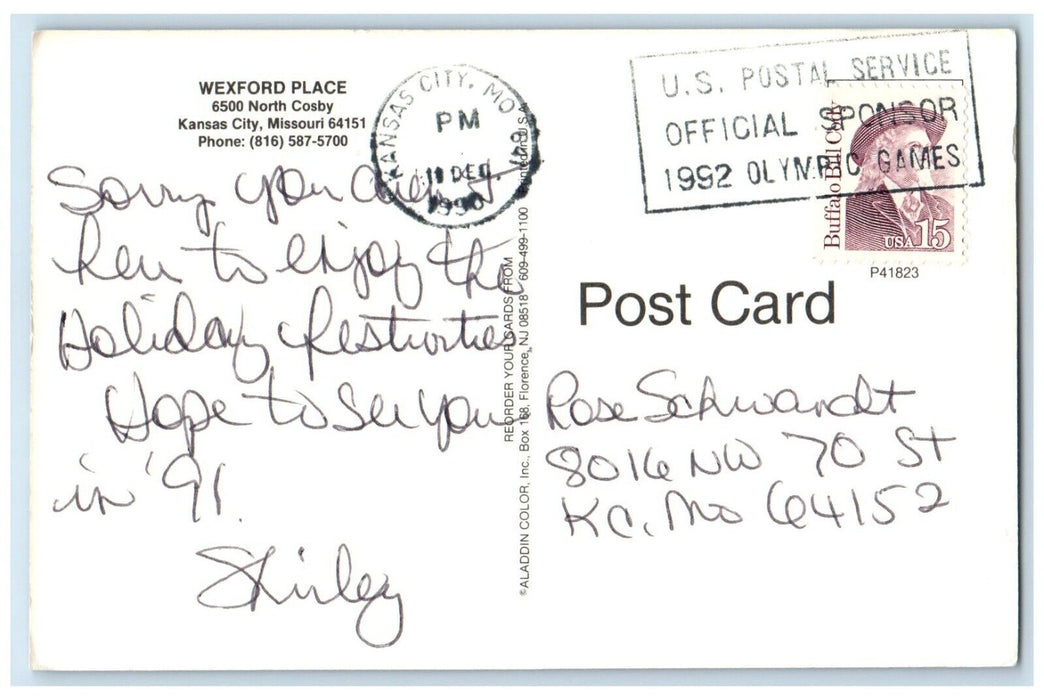 WEXFORD PLACE
6500 North Cosby
Kansas City, Missouri 64151
Phone: (816) 587-5700
Sorry you aren't
here to enjoy the
Holiday festivities
Hope to see you
in '91.
Shirley
KANSAS CITY, MO 641
PM
DEC
1990
REORDER YOUR CARDS FROM
©ALADDIN COLOR, Inc., Box 168, Florence, NJ 08518 609-499-1100 Printed in U.S.A.
U.S. POSTAL SERVICE
OFFICIAL SPONSOR
1992 OLYMPIC GAMES
Buffalo Bill Cody
USA 15
P41823
Post Card
Rose Schwandt
8016 NW 70 St
KC. Mo 64152